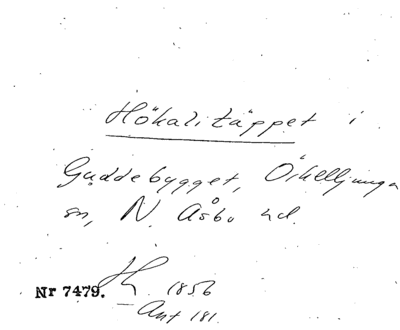 Hökalitäppet i
Guddebygget, Örkelljunga
sn, N. Åsbo hd.
Nr 7479. 1856
Ant 181.